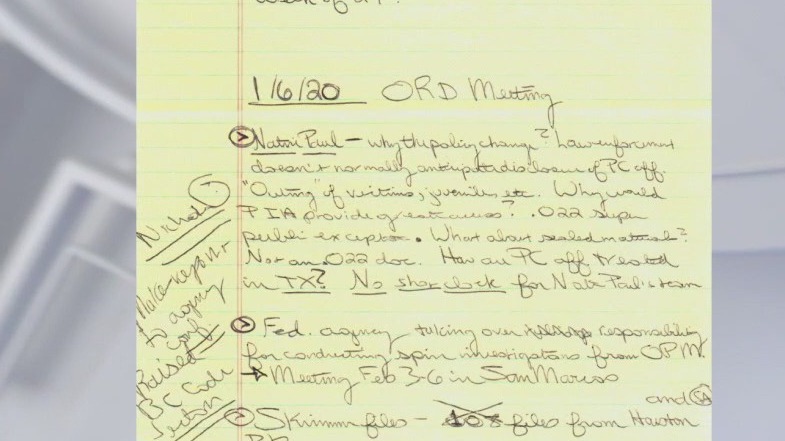 week of
1/6/20 ORD Meeting
Nate Paul — why the policy change? Law enforcement
doesn't normally anticipate disclosure of PC aff.
"Outing" of victims, juveniles, etc. Why would
PIA provide greater access? .022 super
public exception. What about sealed materials?
Not an .022 doc. How are PC aff treated
in TX? No shot clock for Nate Paul's team
Fed. agency taking over responsibility
for conducting spin investigations from OPM.
Meeting Feb 3-6 in San Marcos
and CA
files - 108 files from Houston
Make
to agency
Raised
BC Code